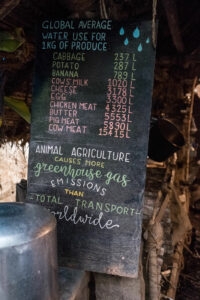 GLOBAL AVERAGE
WATER USE FOR
1KG OF PRODUCE
CABBAGE 237 L
POTATO 287 L
BANANA 789 L
COWS MILK 1020 L
CHEESE 3178 L
EGG 3300 L
CHICKEN MEAT 4325 L
BUTTER 5553 L
PIG MEAT 5890 L
COW MEAT 15415 L
ANIMAL AGRICULTURE
CAUSES MORE
greenhouse gas
EMISSIONS
THAN
TOTAL TRANSPORT
worldwide